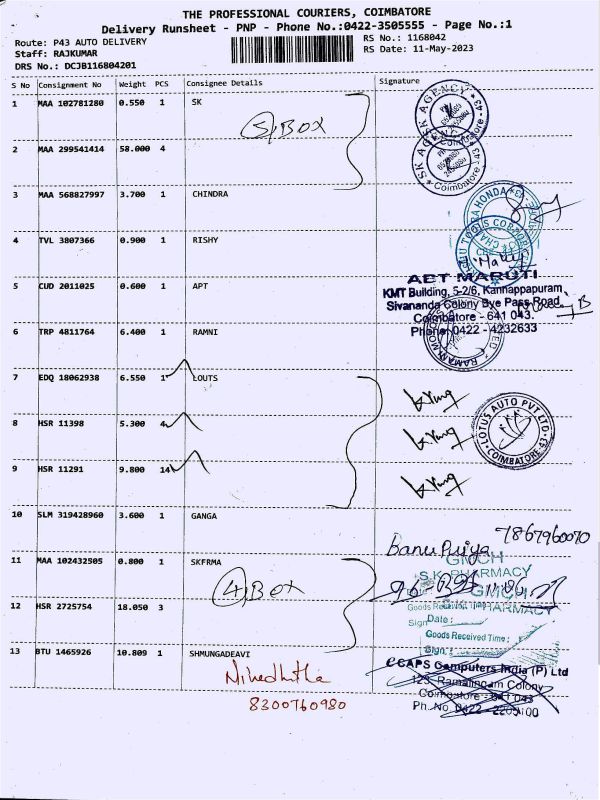 THE PROFESSIONAL COURIERS, COIMBATORE
Delivery Runsheet - PNP - Phone No.:0422-3505555 - Page No.:1
Route: P43 AUTO DELIVERY
Staff: RAJKUMAR
DRS No.: DCJB116804201
RS No.: 1168042
RS Date: 11-May-2023
S No Consignment No Weight PCS Consignee Details Signature
1 MAA 102781280 0.550 1 SK
5, BOX
SK AGENCY
43
2 MAA 299541414 58.000 4
SK AGENCY
Coimbatore - 43
3 MAA 568827997 3.700 1 CHINDRA
HONDA
4 TVL 3807366 0.900 1 RISHY
5 CUD 2011025 0.600 1 APT
AET MARUTI
KMT Building, 5-2/6, Kannappapuram,
Sivananda Colony Bye Pass Road
Coimbatore - 641 043.
Phone: 0422 - 4232633
6 TRP 4811764 6.400 1 RAMNI
7 EDQ 18062938 6.550 1 LOUTS
8 HSR 11398 5.300 4
LOTUS AUTO PVT LTD
COIMBATORE-43
9 HSR 11291 9.800 14
10 SLM 319428960 3.600 1 GANGA
7867960070
Banu Priya
11 MAA 102432505 0.800 1 SKFRMA
GMCH
S.K. PHARMACY
4, Box
GMCH
PHARMACY
12 HSR 2725754 18.050 3
Goods Received
Sign Date:
Goods Received Time:
Sign:
13 BTU 1465926 10.809 1 SHMUNGADEAVI
eCAPS Computers India (P) Ltd
123, Ramalingam Colony
Coimbatore - 641 043
Ph. No. 0422 -
Nivedhitha
8300760980